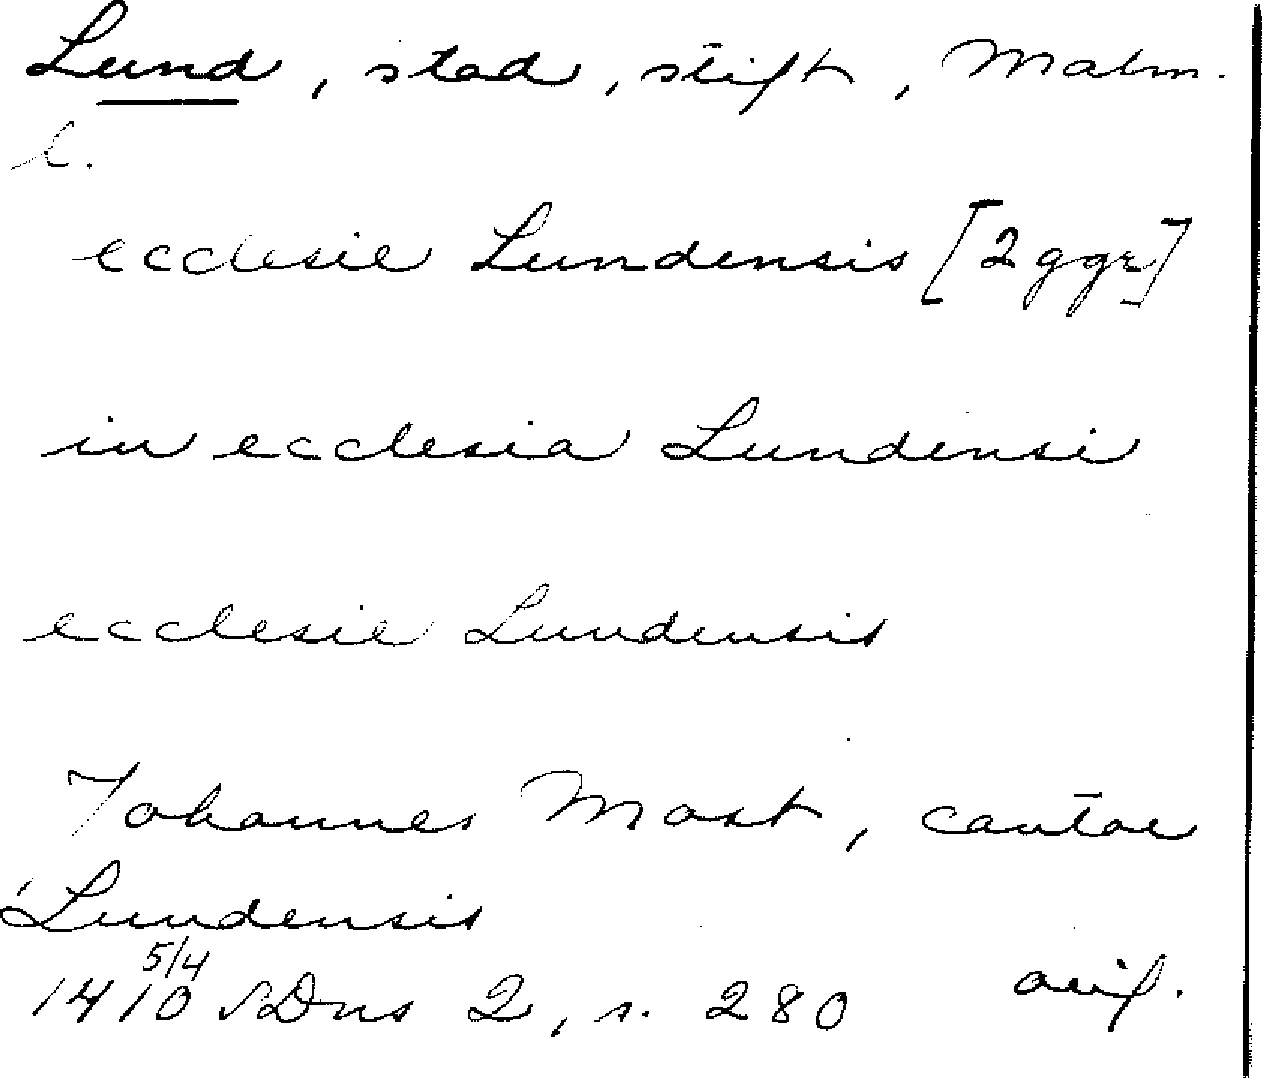 Lund, stad, stift, Malm.
l.
ecclesie Lundensis [2 ggr]
in ecclesia Lundensi
ecclesie Lundensis
Johannes Most, cantor
Lundensis
5/4
1410 SDns 2, s. 280 avif.